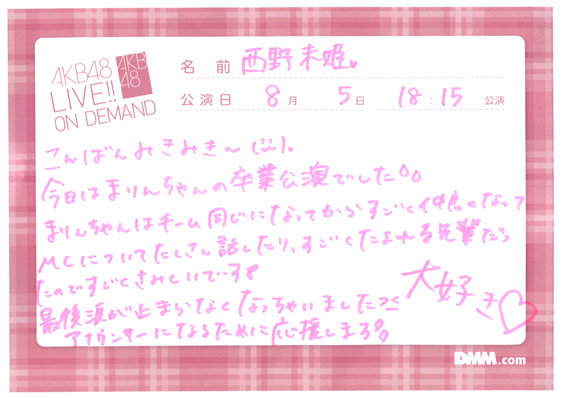 AKB48
LIVE!!
ON DEMAND
AKB
48
名前 西野未姫
公演日 8月 5日 18:15 公演
こんばんみきみき〜(´´)、
今日はまりんちゃんの卒業公演でした
まりんちゃんはチーム同じになってからすごく仲良くなって
MCについてたくさん話したり、すごくたよれる先輩だっ
たのですごくさみしいです
大好き♡
最後涙が止まらなくなっちゃいました><
アナウンサーになるために応援しまる
DMM.com